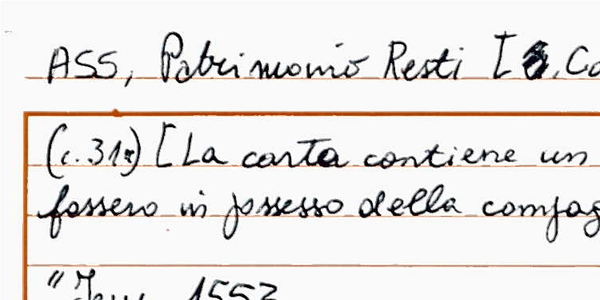 ASS, Patrimonio Resti [
(c. 31r) [La carta contiene un
fossero in possesso della compag
1553